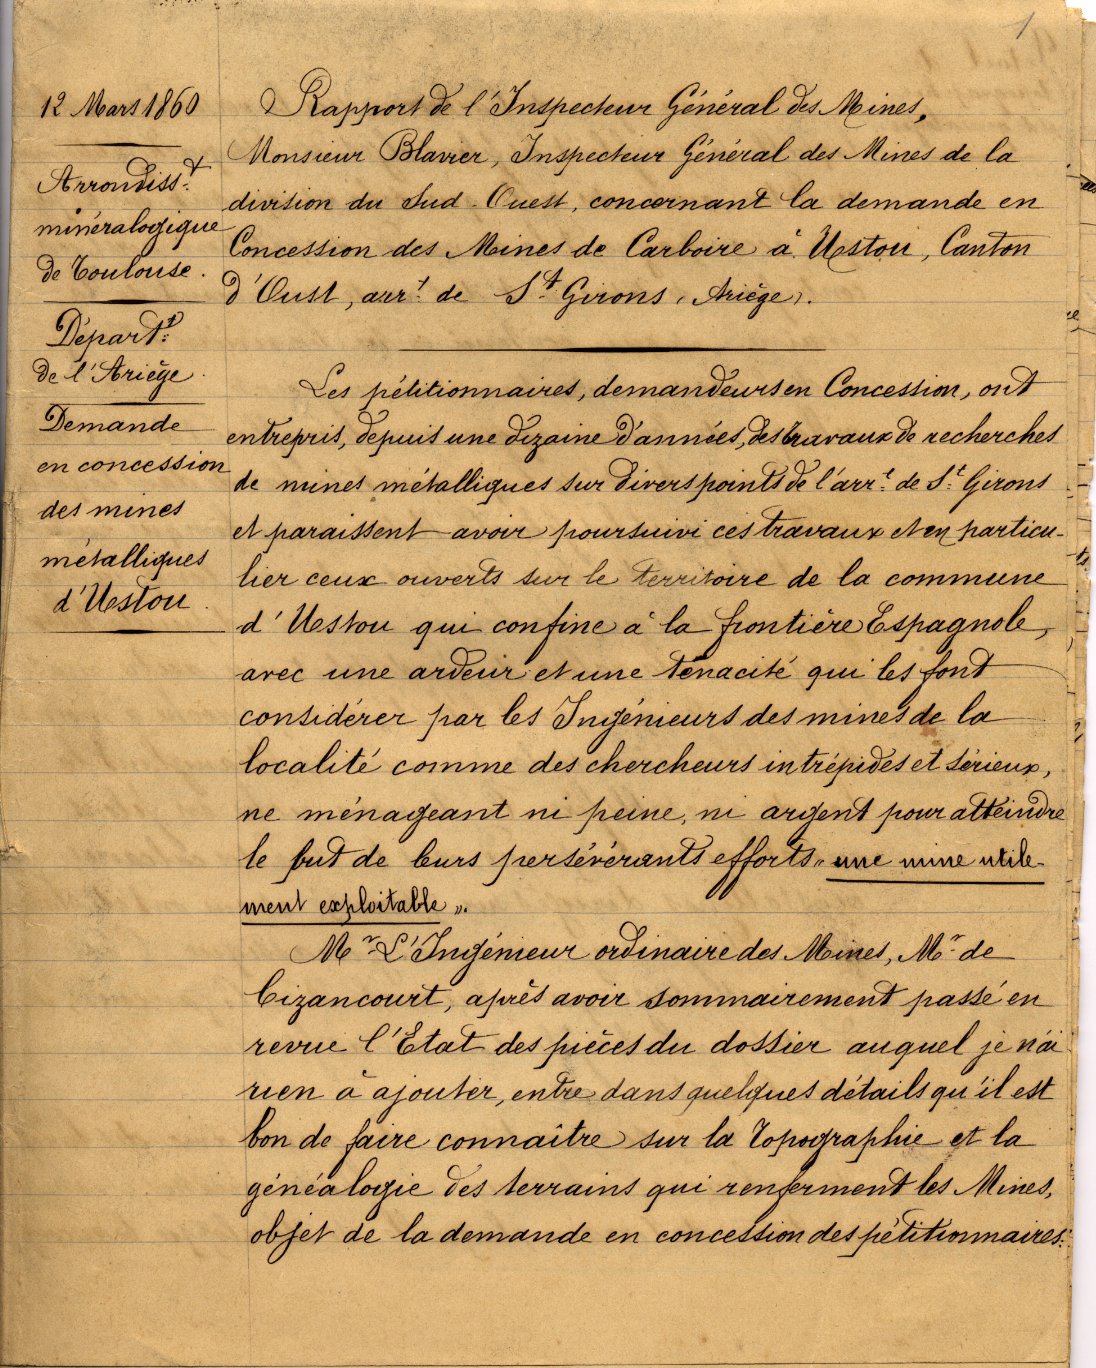 1
12 Mars 1860
Arrondiss.t
minéralogique
de Toulouse.
Départ.t
de l'Ariège.
Demande
en concession
des mines
métalliques
d'Ustou.
Rapport de l'Inspecteur Général des Mines,
Monsieur Blavier, Inspecteur Général des Mines de la
division du Sud-Ouest, concernant la demande en
Concession des Mines de Carboire à Ustou, Canton
d'Oust, arr.t de S.t Girons, (Ariège).
Les pétitionnaires, demandeurs en Concession, ont
entrepris, depuis une dizaine d'années, des travaux de recherches
de mines métalliques sur divers points de l'arr.t de S.t Girons
et paraissent avoir poursuivi ces travaux et en particu-
lier ceux ouverts sur le territoire de la commune
d'Ustou qui confine à la frontière Espagnole,
avec une ardeur et une ténacité qui les font
considérer par les Ingénieurs des mines de la
localité comme des chercheurs intrépides et sérieux,
ne ménageant ni peine, ni argent pour atteindre
le but de leurs persévérants efforts « une mine utile-
ment exploitable ».
M.r L'Ingénieur ordinaire des Mines, M.r de
Cizancourt, après avoir sommairement passé en
revue l'Etat des pièces du dossier auquel je n'ai
rien à ajouter, entre dans quelques détails qu'il est
bon de faire connaître sur la Topographie et la
généalogie des terrains qui renferment les Mines,
objet de la demande en concession des pétitionnaires: